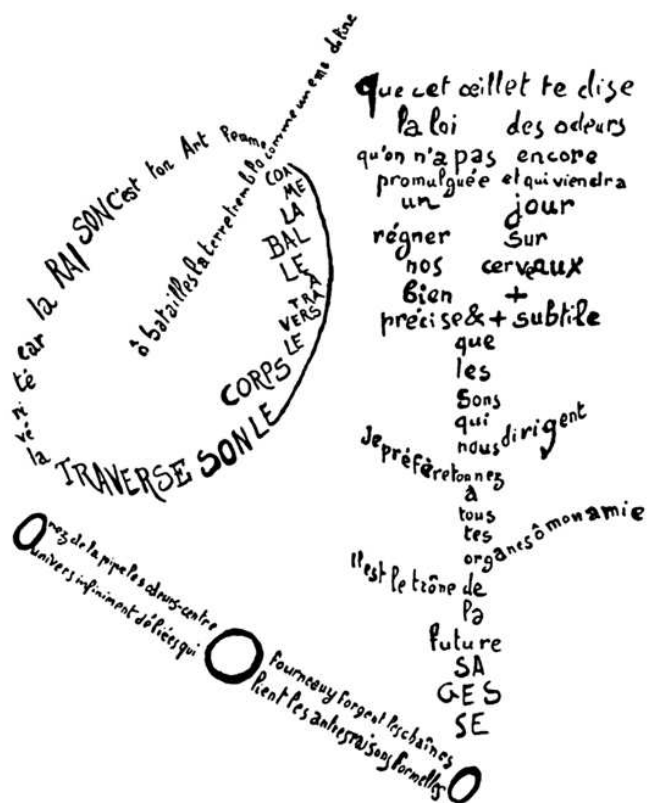 ô batailles la terre tremble comme une mandoline
COM
ME
LA
BAL
LE
À
TRA
VERS
LE
CORPS
LE SON TRAVERSE
la
vé
ri
té
car
la RAISON c'est ton Art Femme
que cet œillet te dise
la loi des odeurs
qu'on n'a pas encore
promulguée et qui viendra
un jour
régner sur
nos cerveaux
bien +
précise & + subtile
que
les
sons
qui
nous dirigent
Je préfère ton nez
à
tous
tes
organes ô mon amie
Il est le trône de
la
future
SA
GES
SE
O nez de la pipe les odeurs-centre O fourneau y forgent les chaînes O
univers infiniment déliées qui lient les autres raisons formelles